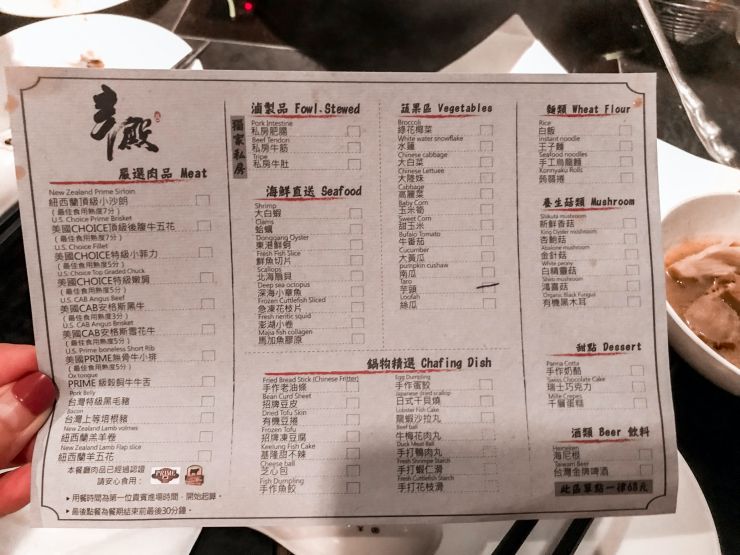 嚴選肉品 Meat
New Zealand Prime Sirloin
紐西蘭頂級小沙朗
(最佳食用熟度7分)
U.S. Choice Prime Brisket
美國CHOICE頂級後腹牛五花
(最佳食用熟度7分)
U.S. Choice Fillet
美國CHOICE特級小菲力
(最佳食用熟度5分)
U.S. Choice Top Graded Chuck
美國CHOICE特級嫩肩
(最佳食用熟度5分)
U.S. CAB Angus Beef
美國CAB安格斯黑牛
(最佳食用熟度5分)
U.S. CAB Angus Brisket
美國CAB安格斯雪花牛
(最佳食用熟度5分)
U.S. Prime boneless Short Rib
美國PRIME無骨牛小排
(最佳食用熟度5分)
Ox tongue
PRIME級穀飼牛牛舌
Pork Belly
台灣特級黑毛豬
Bacon
台灣上等培根豬
New Zealand Lamb volmes
紐西蘭羔羊卷
New Zealand Lamb Flap slice
紐西蘭羊五花
本餐廳肉品已經過認證
請安心食用：
PRIME
▸用餐時間為第一位貴賓進場時間，開始起算。
▸最後點餐為餐期結束前最後30分鐘。
獨家私房
滷製品 Fowl.Stewed
Pork Intestine
私房肥腸
Beef Tendon
私房牛筋
Tripe
私房牛肚
海鮮直送 Seafood
Shrimp
大白蝦
Clams
蛤蠣
Donggang Oyster
東港鮮蚵
Fresh Fish Slice
鮮魚切片
Scallops
北海扇貝
Deep sea octopus
深海小章魚
Frozen Cuttlefish Sliced
急凍花枝片
Fresh neritic squid
澎湖小卷
Majia fish collagen
馬加魚膠原
蔬果區 Vegetables
Broccoli
綠花椰菜
White water snowflake
水蓮
Chinese cabbage
大白菜
Chinese Lettuce
大陸妹
Cabbage
高麗菜
Baby Corn
玉米筍
Sweet Corn
甜玉米
Bufalo Tomato
牛番茄
Cucumber
大黃瓜
pumpkin cushaw
南瓜
Taro
芋頭
Loofah
絲瓜
鍋物精選 Chafing Dish
Fried Bread Stick (Chinese Fritter)
手作老油條
Bean Curd Sheet
招牌豆皮
Dried Tofu Skin
有機豆捲
Frozen Tofu
招牌凍豆腐
Keelung Fish Cake
基隆甜不辣
Cheese ball
芝心包
Fish Dumpling
手作魚餃
Egg Dumpling
手作蛋餃
Japanese dried scallop
日式干貝燒
Lobster Fish Cake
龍蝦沙拉丸
Beef ball
牛梅花肉丸
Duck Meat Ball
手打鴨肉丸
Fresh Shrimpe Starch
手打蝦仁滑
Fresh Cuttlefish Starch
手打花枝滑
麵類 Wheat Flour
Rice
白飯
instant noodle
王子麵
Seafood noodles
手工烏龍麵
Konnyaku Rolls
蒟蒻捲
養生菇類 Mushroom
Shiikuta mushroom
新鮮香菇
King Oyster mushroom
杏鮑菇
Abalone mushroom
金針菇
White peony
白精靈菇
Shiro mushroom
鴻喜菇
Organic Black Fungus
有機黑木耳
甜點 Dessert
Panna Cotta
手作奶酪
Swiss Chocolate Cake
瑞士巧克力
Mille Crepes
千層蛋糕
酒類 Beer 飲料
Heineken
海尼根
Taiwan Beer
台灣金牌啤酒
此區單點一律68元